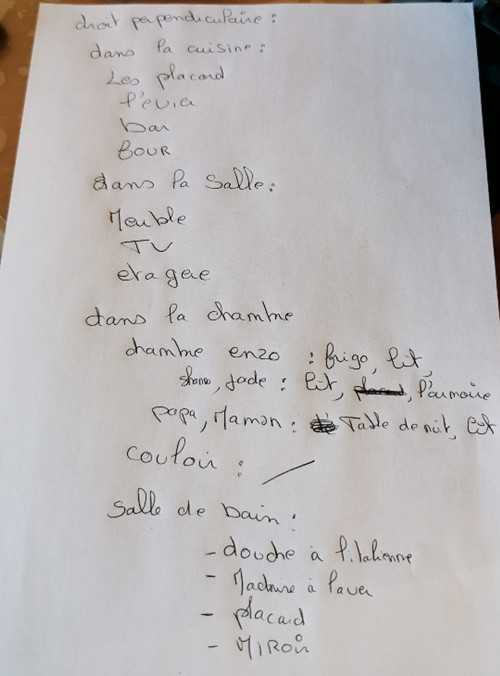 droit perpendiculaire :
dans la cuisine :
Les placard
l'évier
bar
FOUR
dans la salle :
Meuble
TV
etagere
dans la chambre
chambre enzo : frigo, lit,
shana, Jade : lit, placard, l'armoire
papa, Maman : Table de nuit, lit
couloir :
Salle de bain :
- douche à l'italienne
- Machine à laver
- placard
- MIROIR